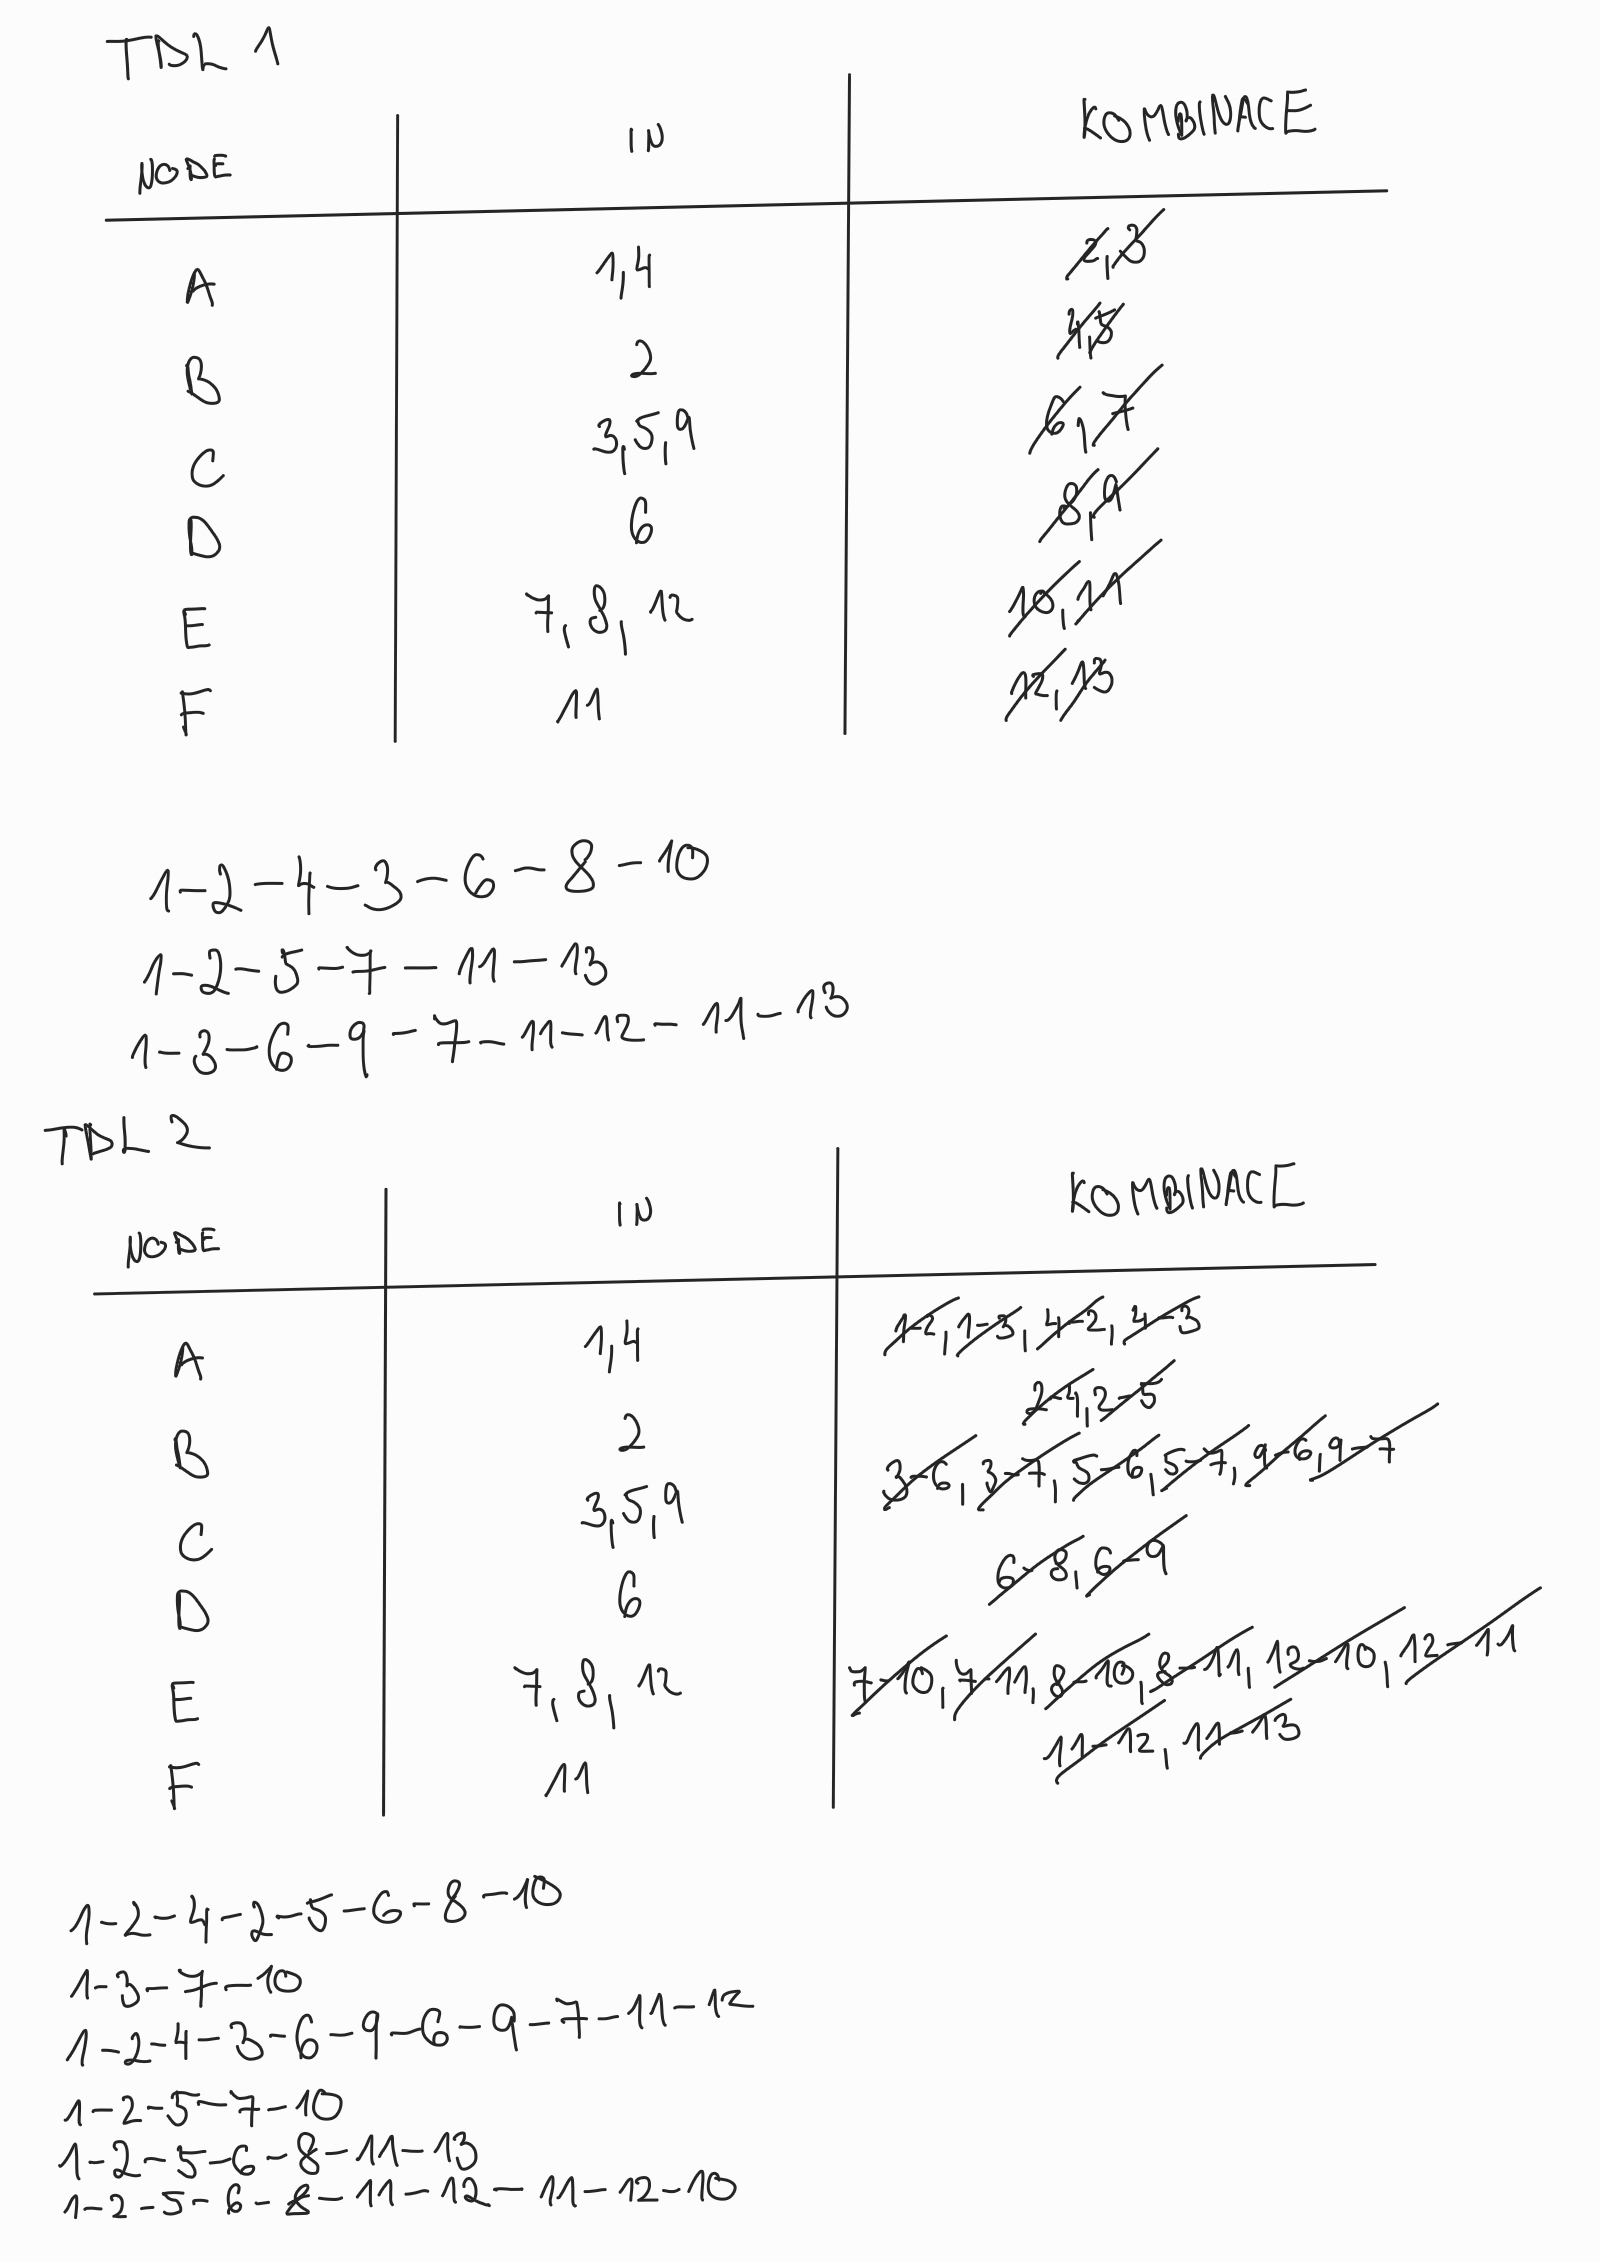 TDL 1
NODE IN KOMBINACE
A 1,4 2,3
B 2 4,5
C 3,5,9 6,7
D 6 8,9
E 7,8,12 10,11
F 11 12,13
1-2-4-3-6-8-10
1-2-5-7-11-13
1-3-6-9-7-11-12-11-13
TDL 2
NODE IN KOMBINACE
A 1,4 1-2,1-3,4-2,4-3
B 2 2-4,2-5
C 3,5,9 3-6,3-7,5-6,5-7,9-6,9-7
D 6 6-8,6-9
E 7,8,12 7-10,7-11,8-10,8-11,12-10,12-11
F 11 11-12,11-13
1-2-4-2-5-6-8-10
1-3-7-10
1-2-4-3-6-9-6-9-7-11-12
1-2-5-7-10
1-2-5-6-8-11-13
1-2-5-6-8-11-12-11-12-10